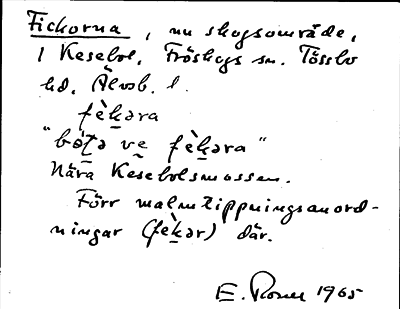 Fickorna, nu skogsområde,
i Kesebol, Fröskogs sn. Tössbo
hd, Älvsb. l.
fèk̲əra
"bo̱t̲a ve̱ fèk̲əra"
Nära Kesebolsmossen.
Förr malmtippningsanord-
ningar (fèk̲ər) där.
E. Rosell 1965